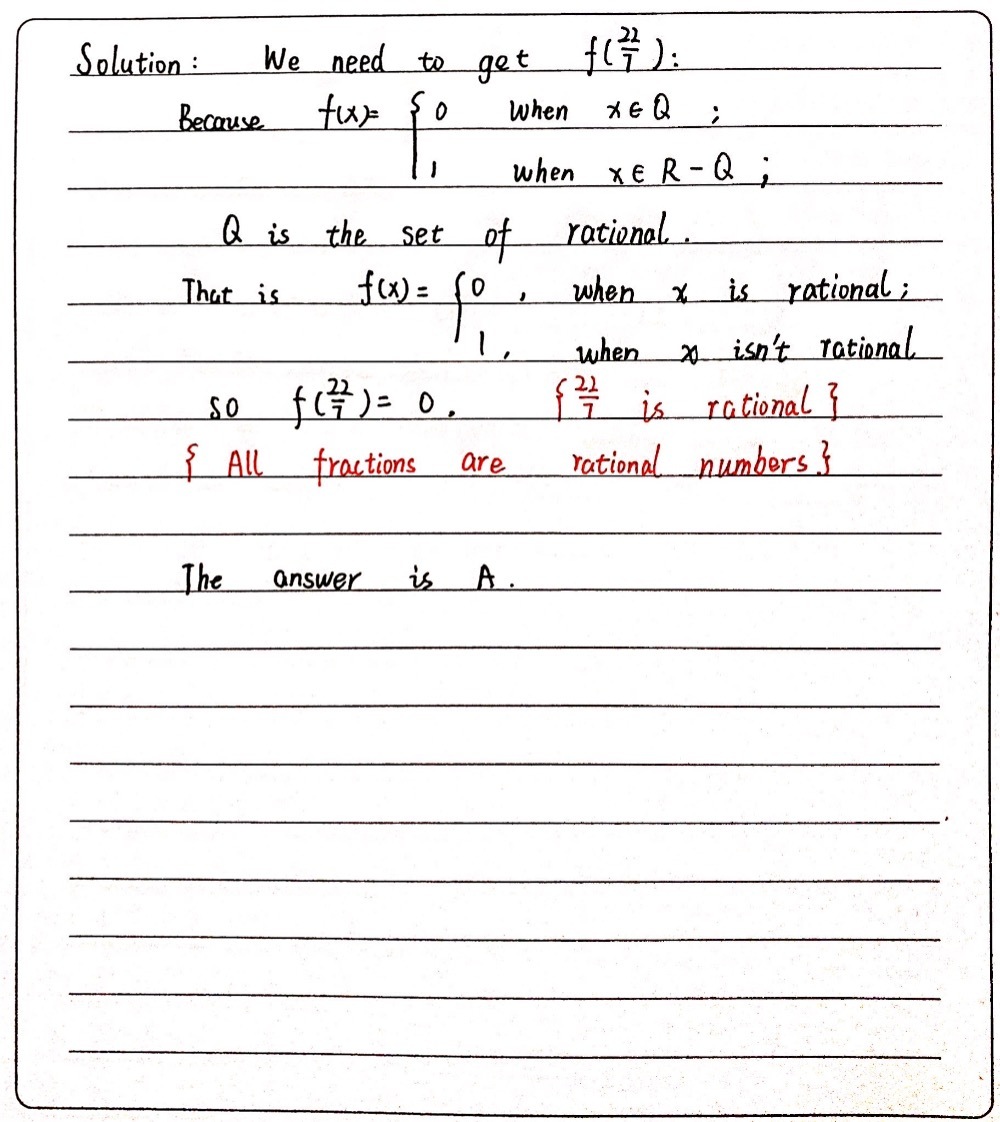 Solution: We need to get f(22/7):
Because f(x)= { 0 when x ∈ Q ;
1 when x ∈ R - Q ;
Q is the set of rational.
That is f(x) = { 0 , when x is rational;
1 , when x isn't rational
so f(22/7) = 0 . { 22/7 is rational }
{ All fractions are rational numbers }
The answer is A .